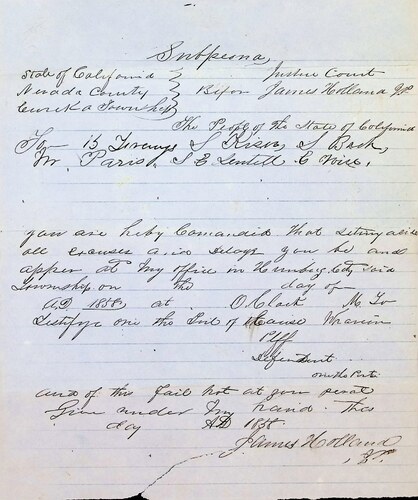 Subpeona,
State of California } Justice Court
Nevada County } Before James Holland JP
Eureka Township }
The People of the State of California
To B S Kiser, S Back,
Wm Paris, S E C Wise,
you are heby Comandid that Seting aside
all excuses and Delays you be and
apper at my office in Humbug City Said
Township on the day of
AD 1858 at O Clock M To
Testifye on the of Cause Wharin
Plff
Defendent
on the Part
and of this fail not at your peral
Given under my hand this
day AD 1858.
James Holland
JP.